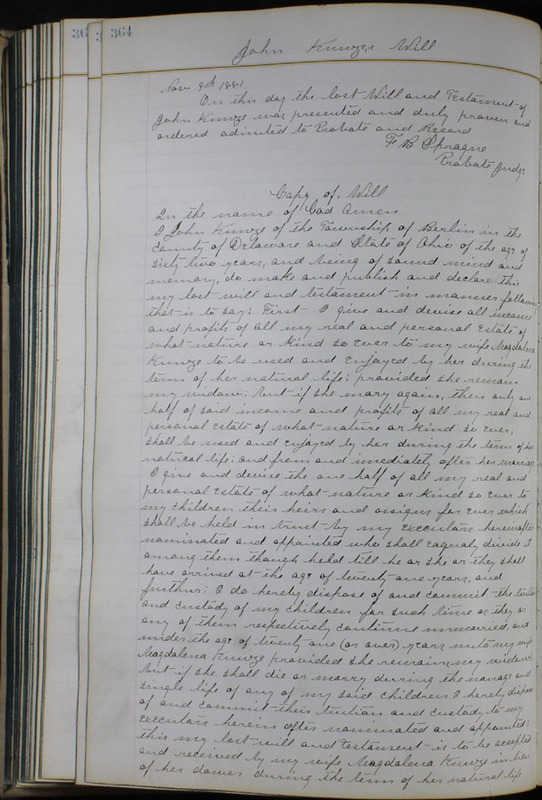 364
John Kunze's Will
Nov 9th 1881
On this day the last Will and Testament of
John Kunze was presented and duly proven and
ordered admitted to Probate and Record
F B Sprague
Probate Judge
Copy of Will
In the name of God Amen
I John Kunze of the Township of Berlin in the
County of Delaware and State of Ohio of the age of
sixty two years, and being of sound mind and
memory, do make and publish and declare this
my last will and testament in manner following
that is to say: First I give and devise all income
and profits of all my real and personal estate of
what nature or kind so ever to my wife Magdalena
Kunze to be used and enjoyed by her during the
term of her natural life; provided she remain
my widow: but if she mary again, then only one
half of said income and profits of all my real and
personal estate of what nature or kind so ever,
shall be used and enjoyed by her during the term of her
natural life: and from and imediately after her marriage
I give and devise the one half of all my real and
personal estate of what nature or kind so ever to
my children their heirs and assigns for ever which
shall be held in trust by my executors hereinafter
nominated and appointed who shall equaly divide it
among them though held till he or she or they shall
have arrived at the age of twenty one years, and
further: I do hereby dispose of and commit the tuition
and custody of my children for such time as they or
any of them respectively continue unmarried, and
under the age of twenty one (or over) years unto my wife
Magdalena Kunze provided she remains my widow
but if she shall die or marry during the nonage and
single life of any of my said children I hereby dispose
of and commit their tuition and custody to my
executors herein after nominated and appointed:
this my last will and testament is to be accepted
and received by my wife Magdalena Kunze in lieu
of her dower during the term of her natural life